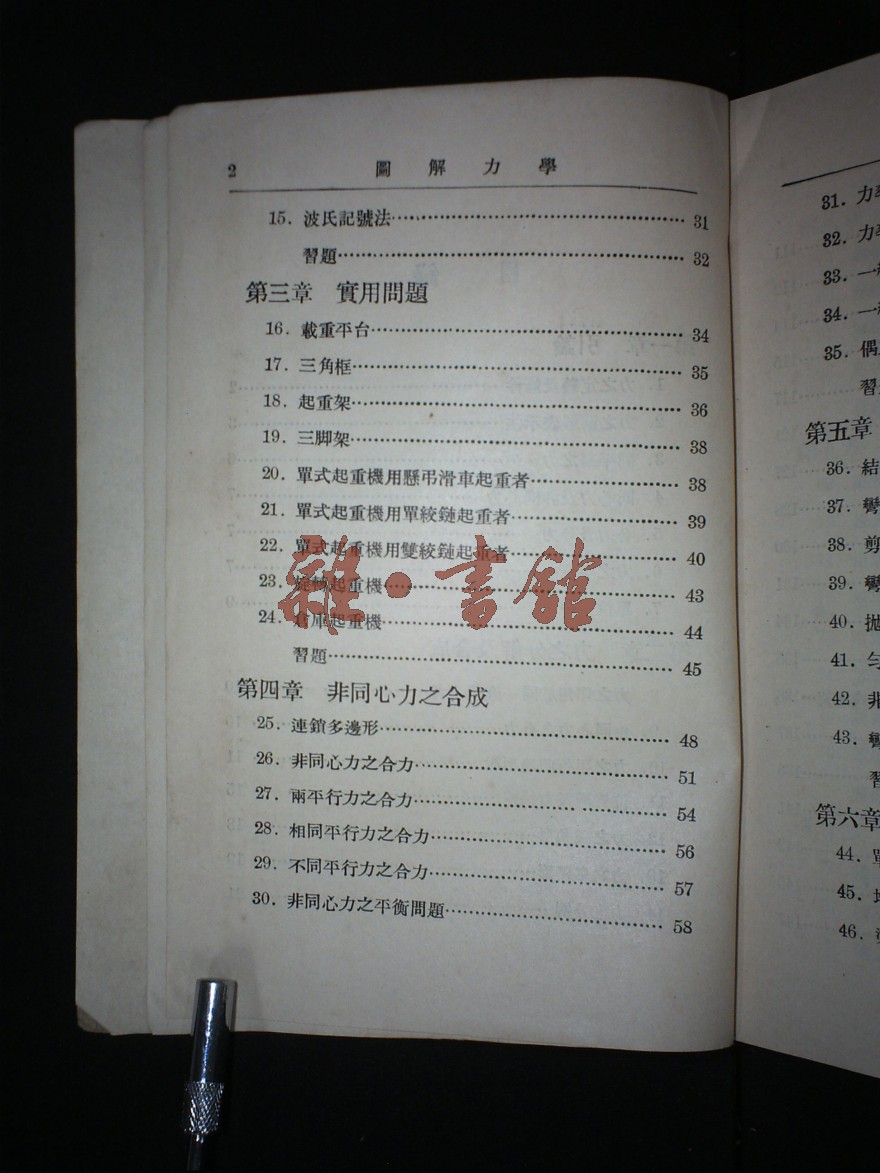 2 圖解力學
15. 波氏記號法 31
習題 32
第三章 實用問題
16. 載重平台 34
17. 三角框 35
18. 起重架 36
19. 三脚架 38
20. 單式起重機用懸弔滑車起重者 38
21. 單式起重機用單絞鏈起重者 39
22. 單式起重機用雙絞鏈起重者 40
23. 旋轉起重機 43
24. 倉庫起重機 44
習題 45
第四章 非同心力之合成
25. 連鎖多邊形 48
26. 非同心力之合力 51
27. 兩平行力之合力 54
28. 相同平行力之合力 56
29. 不同平行力之合力 57
30. 非同心力之平衡問題 58
雜·書館
31. 力
32. 力
33. 一
34. 一
35. 偶
習
第五章
36. 結
37. 彎
38. 剪
39. 彎
40. 拋
41. 勻
42. 非
43. 彎
習
第六章
44. 單
45.
46.